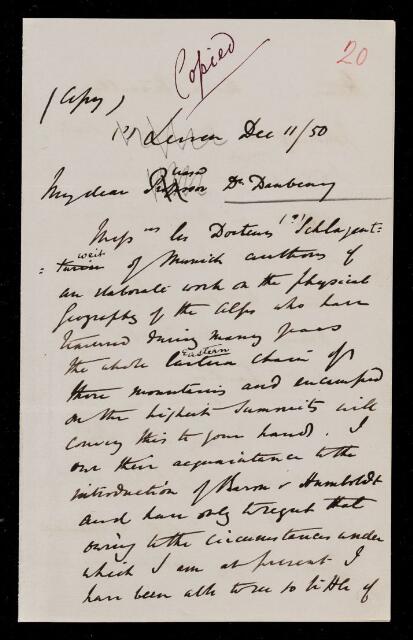 Copied
20
(Copy)
Dec 11/50
My dear Dr. Daubeny
Messrs les Docteurs Schlagent-
weit of Munich authors of
an elaborate work on the physical
Geography of the Alps who have
traversed during many years
the whole Eastern chain of
those mountains and encamped
on the highest summits will
convey this to your hands. I
owe their acquaintance to the
introduction of Baron v Humboldt
and have only to regret that
owing to the circumstances under
which I am at present I
have been able to see so little of